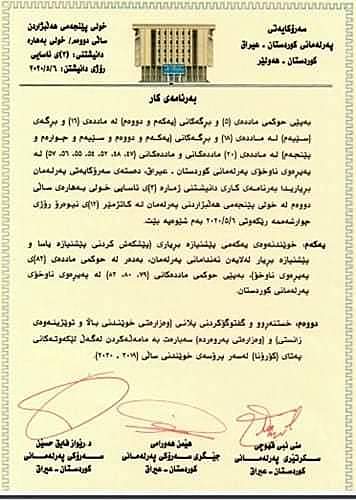 سەرۆکایەتی
پەرلەمانی کوردستان - عیراق
کوردستان - هەولێر
خولی پێنجەمی هەڵبژاردن
ساڵی دووەم/ خولی بەهارە
دانیشتنی: (٢)ی ئاسایی
ڕۆژی دانیشتن: ٢٠٢٠/٥/٦
بەرنامەی کار
بەپێی حوکمی ماددەی (٥) و بڕگەکانی (یەکەم و دووەم) لە ماددەی (١٦) و بڕگەی
(سێیەم) لە ماددەی (١٨) و بڕگەکانی (یەکەم و دووەم و سێیەم و چوارەم و
پێنجەم) لە ماددەی (٢٠) ماددەکانی و ماددەکانی (٤٧، ٤٨، ٥٢، ٥٤، ٥٥، ٥٦، ٥٧) لە
پەیڕەوی ناوخۆی پەرلەمانی کوردستان - عیراق، دەستەی سەرۆکایەتی پەرلەمان
بڕیاریدا بەرنامەی کاری دانیشتنی ژمارە (٢)ی ئاسایی خولی بەهارەی ساڵی
دووەم لە خولی پێنجەمی هەڵبژاردنی پەرلەمان لە کاتژمێر (١٢)ی نیوەڕۆ ڕۆژی
چوارشەممە ڕێکەوتی ٢٠٢٠/٥/٦ بەم شێوەیە بێت.
یەکەم: خوێندنەوەی یەکەمی پێشنیازە بڕیاری (پێشکەش کردنی پێشنیازە یاسا و
پێشنیازە بڕیار لەلایەن ئەندامانی پەرلەمان، بەدەر لە حوکمی ماددەی (٨٢)ی
پەیڕەوی ناوخۆ)، بەپێی حوکمی ماددەکانی (٧٩، ٨٠، ٥٢) لە پەیڕەوی ناوخۆی
پەرلەمانی کوردستان.
دووەم: خستنەڕوو و گفتوگۆکردنی پلانی (وەزارەتی خوێندنی باڵا و توێژینەوەی
زانستی) و (وەزارەتی پەروەردە) سەبارەت بە مامەڵەکردن لەگەڵ لێکەوتەکانی
پەتای (کۆرۆنا) لەسەر پرۆسەی خوێندنی ساڵی (٢٠١٩ - ٢٠٢٠).
منی نبی قهوچی
سکرتێری پەرلەمانی
کوردستان - عیراق
هێمن هەورامی
جێگری سەرۆکی پەرلەمانی
کوردستان - عیراق
د. ڕێواز فایق حسێن
سەرۆکی پەرلەمانی
کوردستان - عیراق